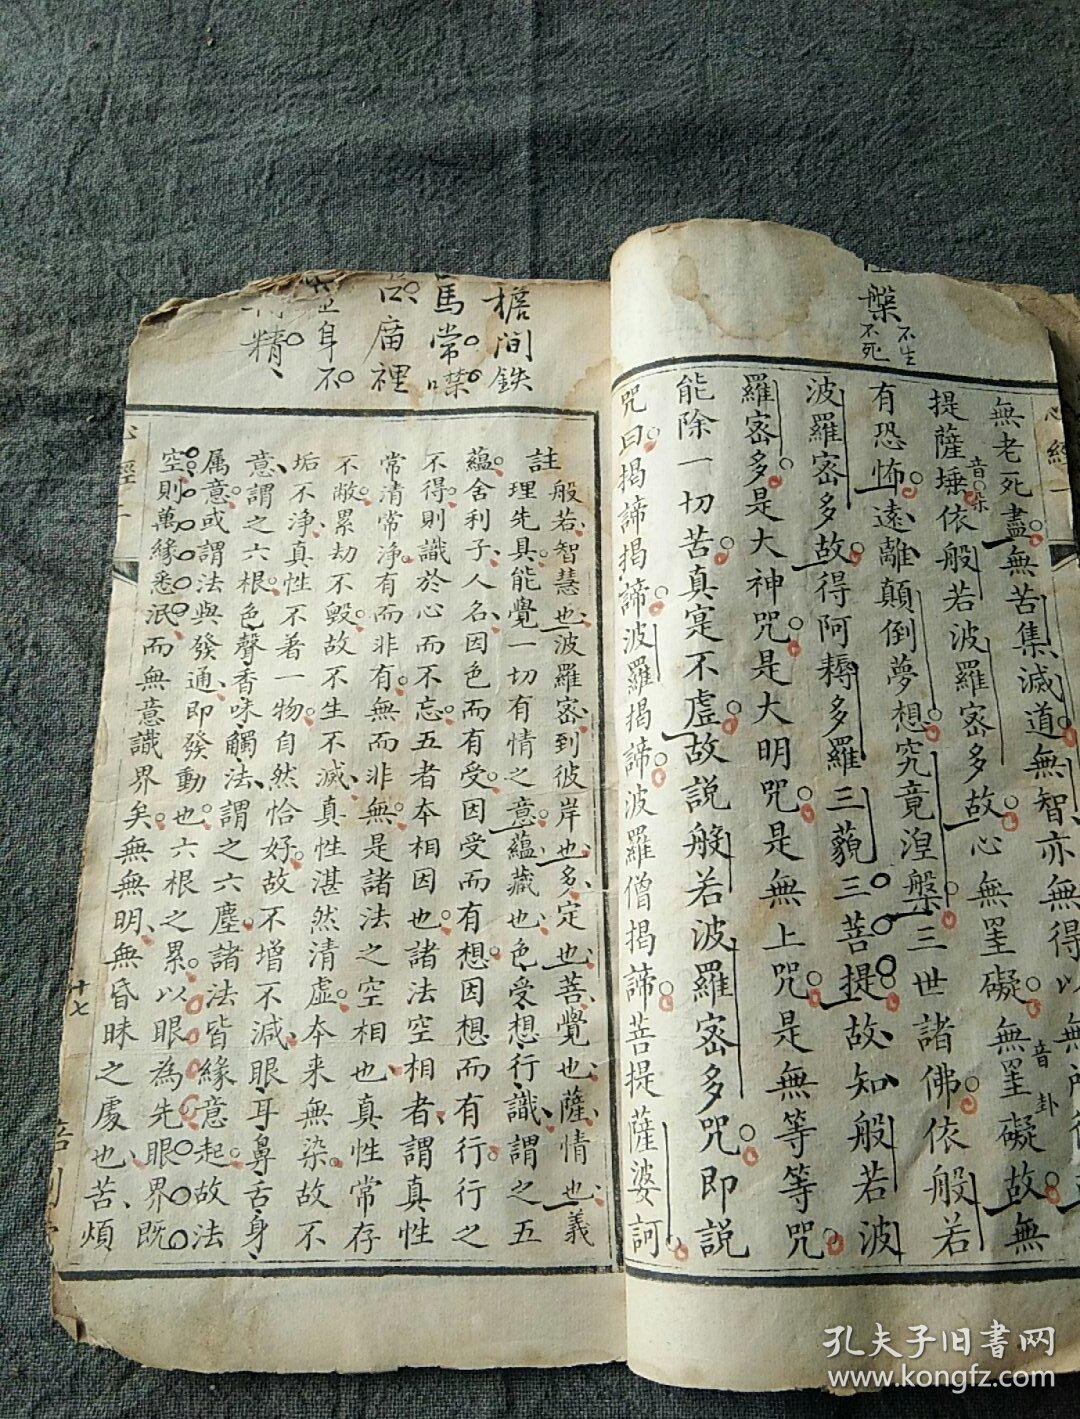 心經
槃
不生
不死
無老死盡無苦集滅道無智亦無得以無所得
提薩埵依般若波羅密多故心無罣礙無罣礙故無
音朵
音卦
有恐怖遠離顛倒夢想究竟湼槃三世諸佛依般若
波羅密多故得阿耨多羅三藐三菩提故知般若波
羅密多是大神咒是大明咒是無上咒是無等等咒
能除一切苦真寔不虛故說般若波羅密多咒即說
咒曰揭諦揭諦波羅揭諦波羅僧揭諦菩提薩婆訶
檐间鉄
馬常噤
口廣裡
身不
精
註般若智慧也波羅密到彼岸也多定也菩覺也薩情也義
理先具能覺一切有情之意蘊藏也色受想行識謂之五
蘊舍利子人名因色而有受因受而有想因想而有行行之
不得則識於心而不忘五者夲相因也諸法空相者謂真性
常清常净有而非有無而非無是諸法之空相也真性常存
不敝累劫不毁故不生不滅真性湛然清虛夲来無染故不
垢不净真性不着一物自然恰好故不增不減眼耳鼻舌身
意謂之六根色聲香味觸法謂之六塵諸法皆緣意起故法
属意或謂法與發通即發動也六根之累以眼為先眼界既
空則萬緣悉泯而無意識界矣無無明無昏昧之處也苦煩
心經
十七